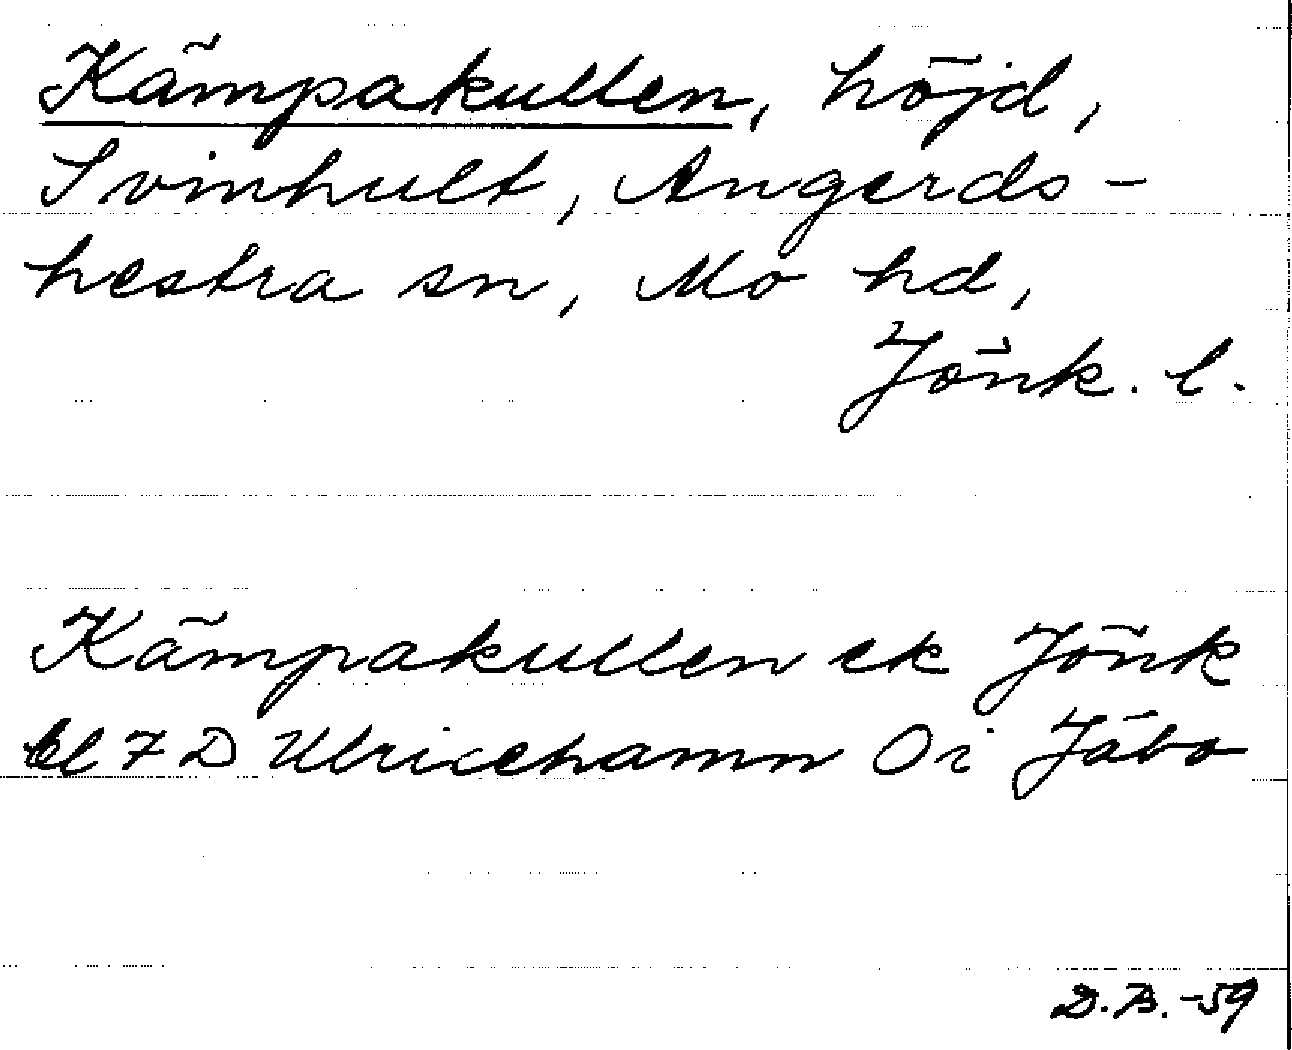 Kämpakullen, höjd,
Svinhult, Angerds-
hestra sn, Mo hd,
Jönk. l.
Kämpakullen ek Jönk
bl 7 D Ulricehamn Oi Jäbo
D.B.-59